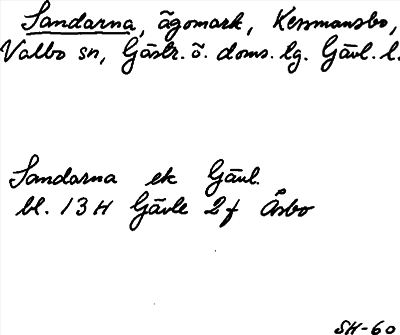 Sandarna, ägomark, Kessmansbo,
Valbo sn, Gästr. ö. doms. lg. Gävl. l.
Sandarna ek Gävl.
bl. 13H Gävle 2f Åsbo
SH-60